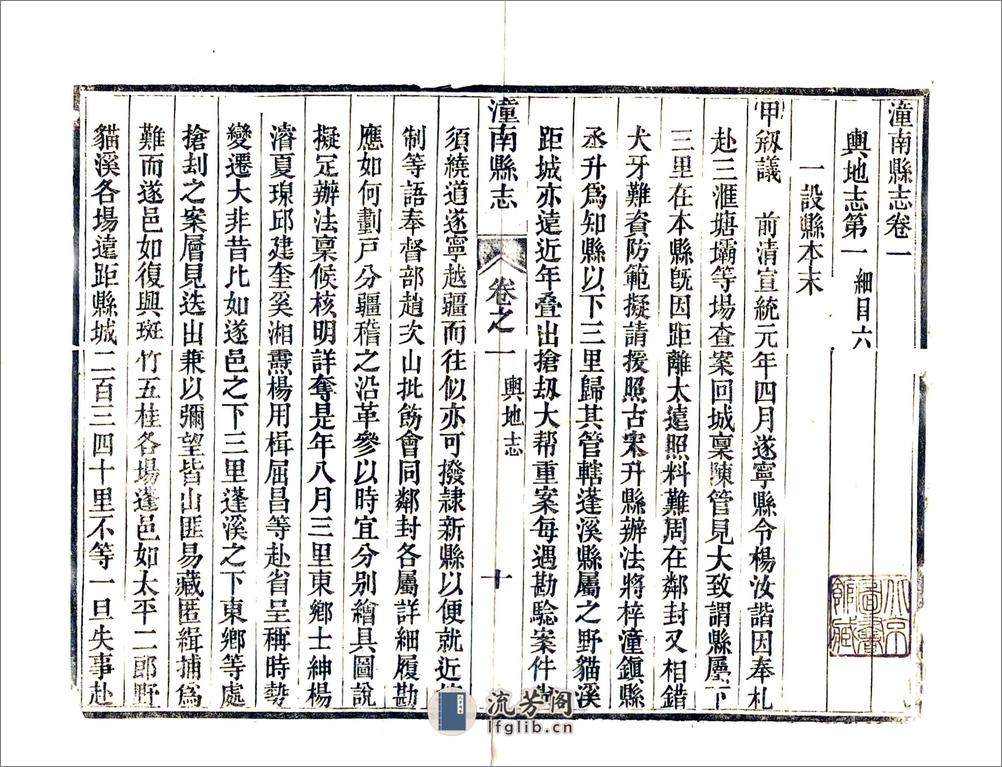 潼南縣志卷一
輿地志第一 細目六
一設縣本末
甲叙議 前清宣統元年四月遂寧縣令楊汝諧因奉札
赴三滙塘壩等場查案回城稟陳管見大致謂縣屬下
三里在本縣旣因距離太遠照料難周在鄰封又相錯
犬牙難資防範擬請援照古宋升縣辦法將梓潼鎭縣
丞升爲知縣以下三里歸其管轄蓬溪縣屬之野貓溪
距城亦遠近年叠出搶刼大帮重案每遇勘騐案件
潼南縣志 卷之一 輿地志 十
須繞道遂寧越疆而往似亦可撥隷新縣以便就近
制等語奉督部趙次山批飭會同鄰封各屬詳細履勘
應如何劃戸分疆稽之沿革參以時宜分别繪具圖說
擬定辦法稟候核明詳奪是年八月三里東鄉士紳楊
濬夏瑔邱建奎奚湘燾楊用楫屈昌等赴省呈稱時勢
變遷大非昔比如遂邑之下三里蓬溪之下東鄉等處
搶刦之案層見迭出兼以彌望皆山匪易藏匿緝捕爲
難而遂邑如復興斑竹五桂各場蓬邑如太平二郎野
貓溪各場遠距縣城二百三四十里不等一旦失事赴
北京圖書館藏
流芳阁
lfglib.cn